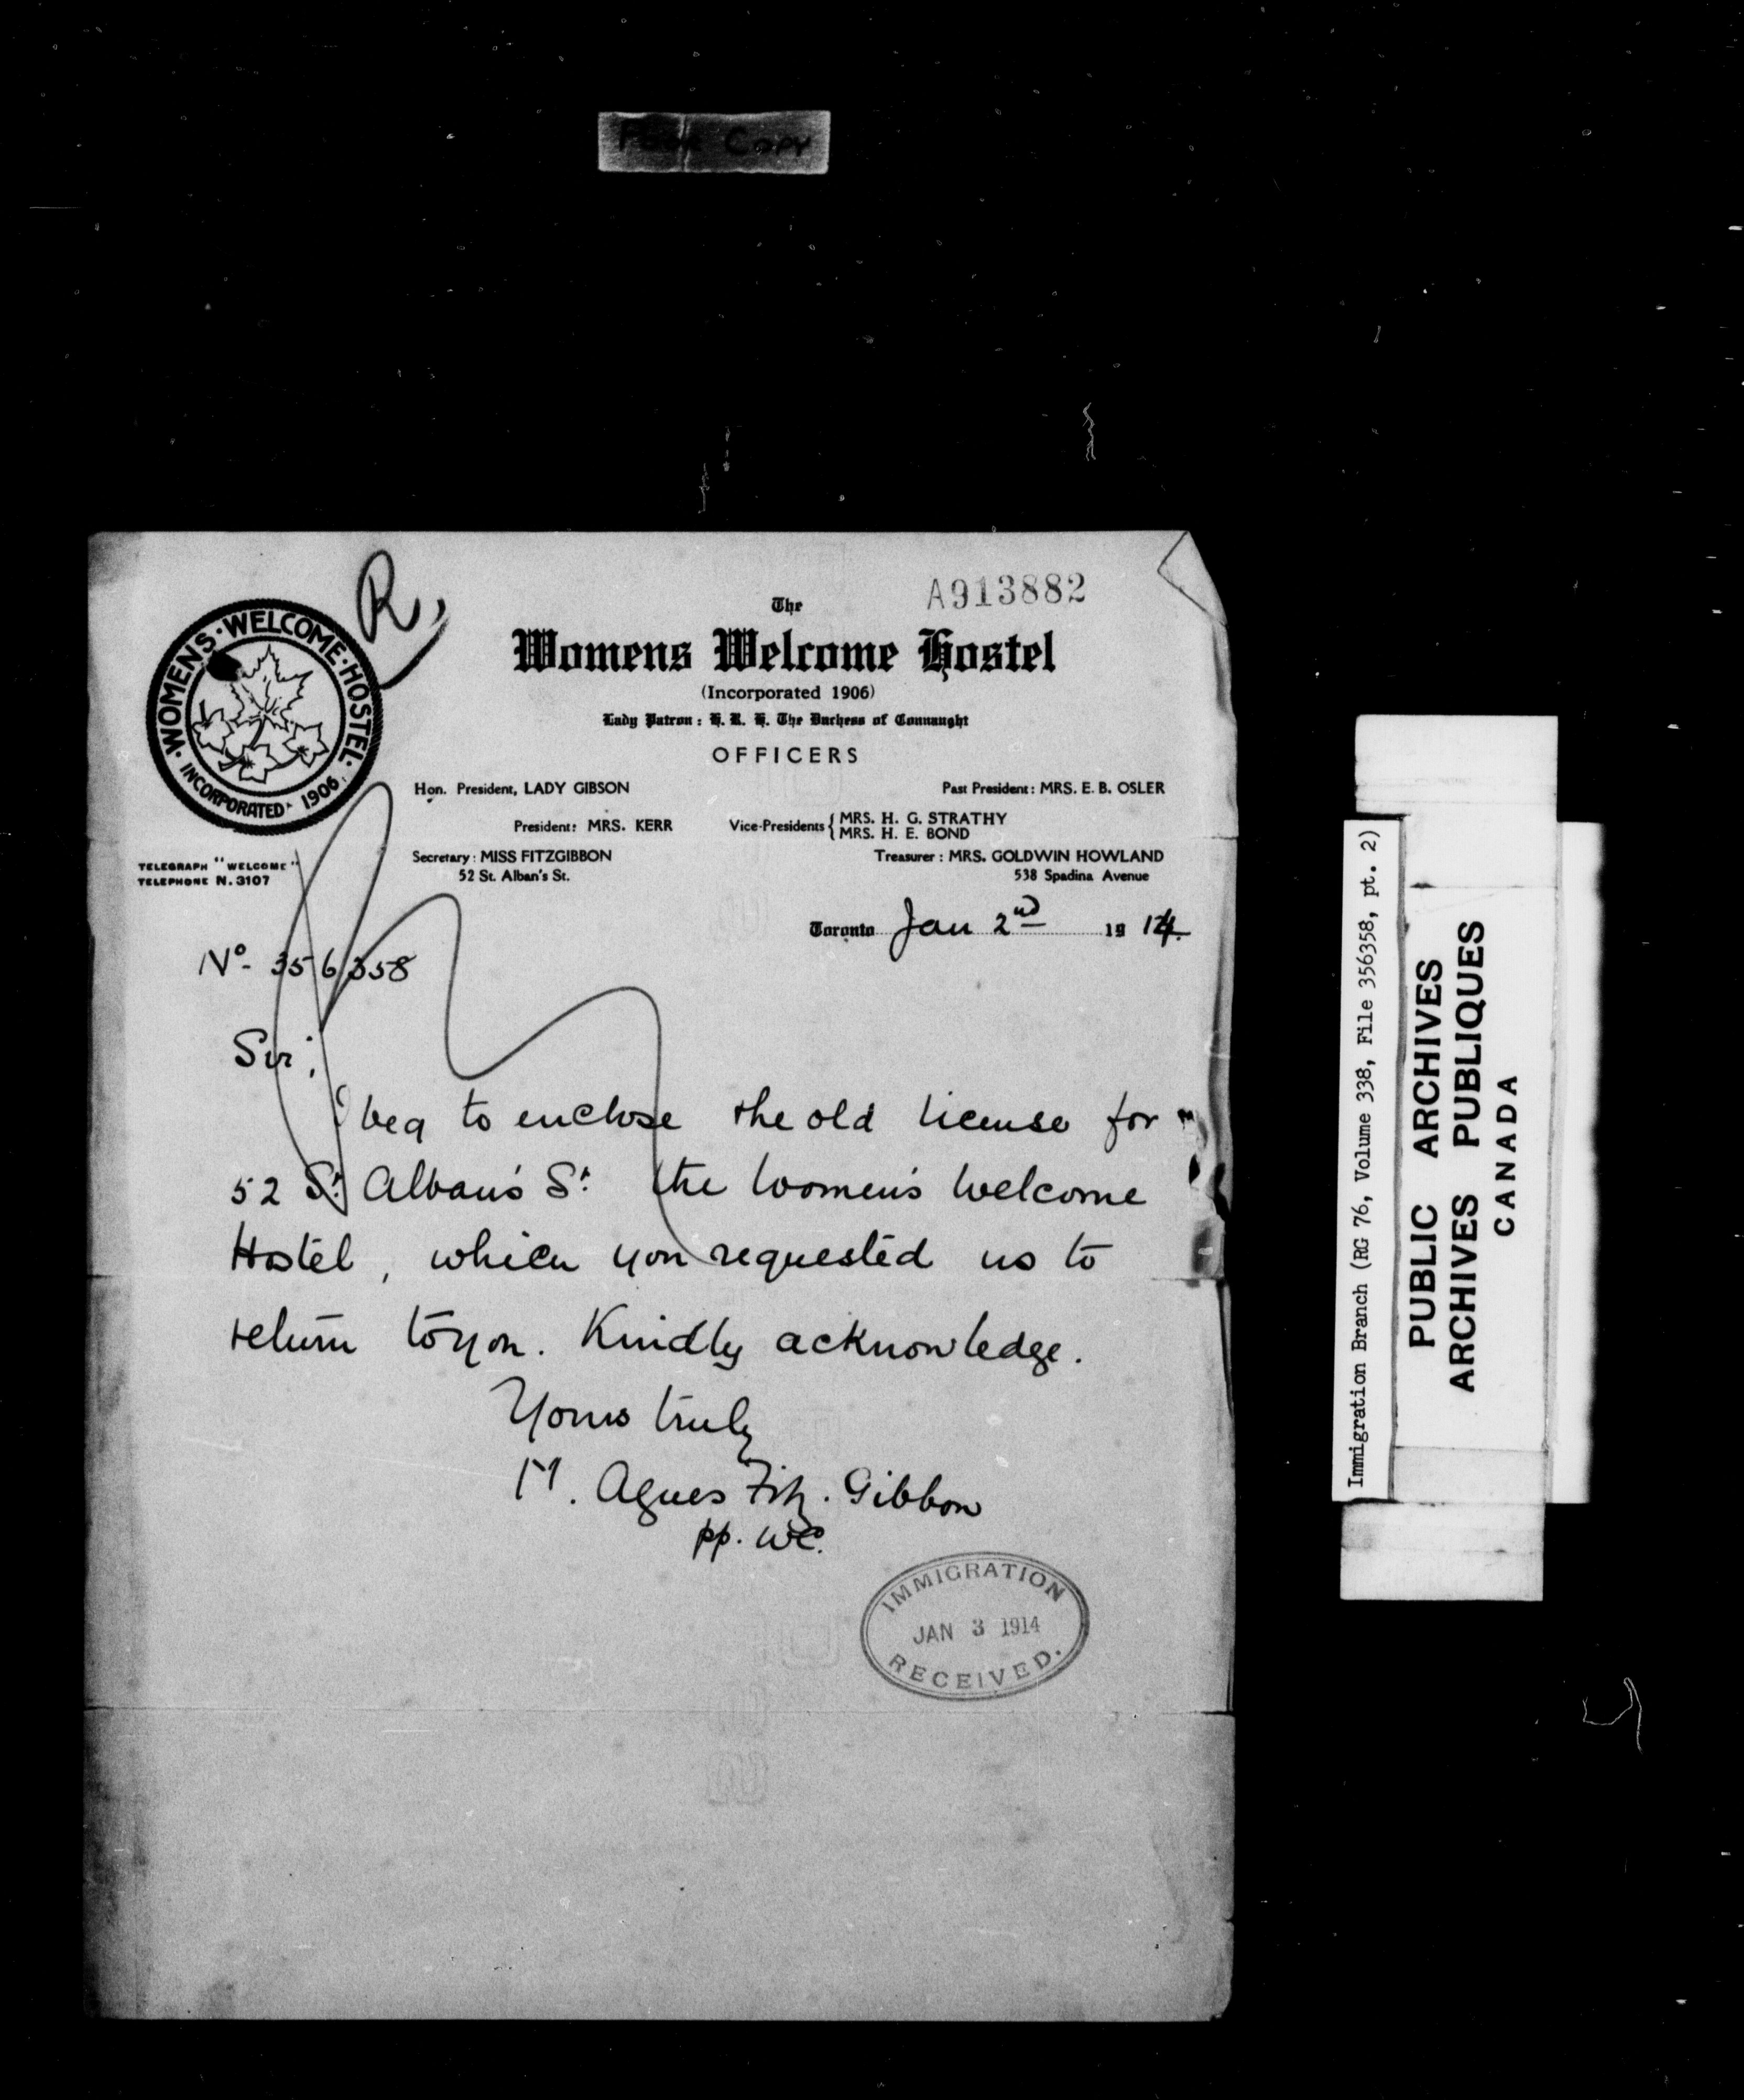 Poor Copy
R,
A913882
WOMENS · WELCOME · HOSTEL · INCORPORATED · 1906
The
Womens Welcome Hostel
(Incorporated 1906)
Lady Patron: H. R. H. The Duchess of Connaught
OFFICERS
Hon. President, LADY GIBSON Past President: MRS. E. B. OSLER
President: MRS. KERR Vice-Presidents { MRS. H. G. STRATHY
MRS. H. E. BOND
TELEGRAPH "WELCOME"
TELEPHONE N. 3107
Secretary: MISS FITZGIBBON Treasurer: MRS. GOLDWIN HOWLAND
52 St. Alban's St. 538 Spadina Avenue
Toronto Jan 2nd 1914.
No- 356358
Sir;
I beg to enclose the old license for
52 St Alban's St. the Women's Welcome
Hostel, which you requested us to
return to you. Kindly acknowledge.
Yours truly
M. Agnes Fitz. Gibbon
pp. WC.
IMMIGRATION
JAN 3 1914
RECEIVED.
Immigration Branch (RG 76, Volume 338, File 356358, pt. 2)
PUBLIC ARCHIVES
ARCHIVES PUBLIQUES
CANADA